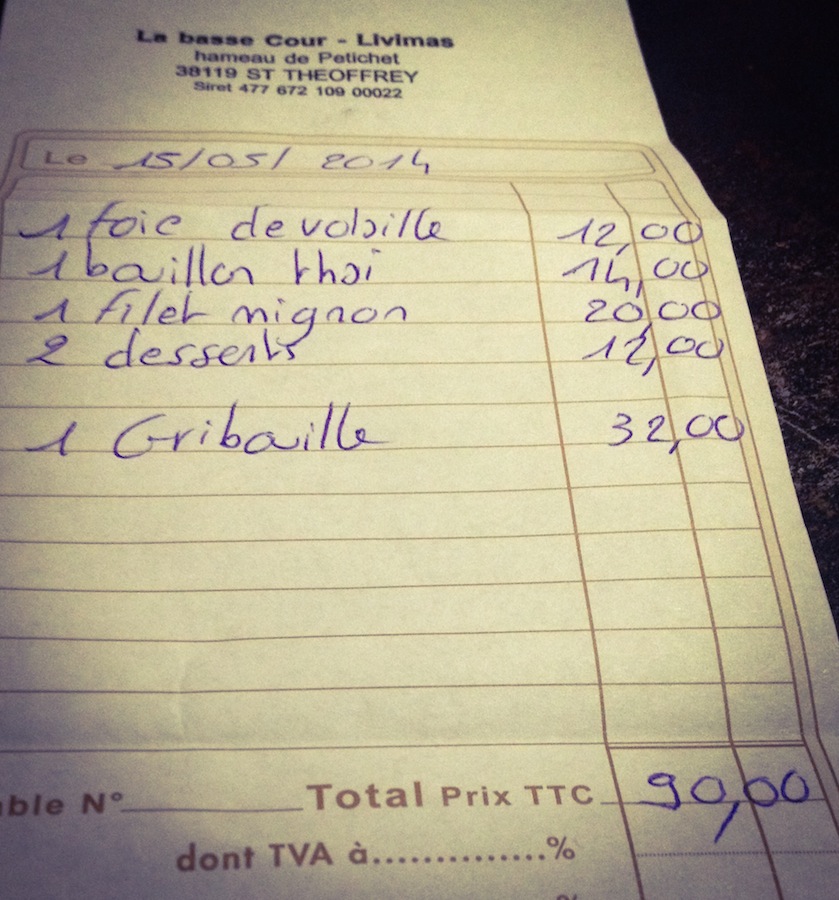 La basse Cour - Livimas
hameau de Petichet
38119 ST THEOFFREY
Siret 477 672 109 00022
Le 15/05/ 2014
1 foie de volaille 12,00
1 bouillon thai 14,00
1 filet mignon 20,00
2 desserts 12,00
1 Gribaille 32,00
ble N° Total Prix TTC 90,00
dont TVA à..............%
%